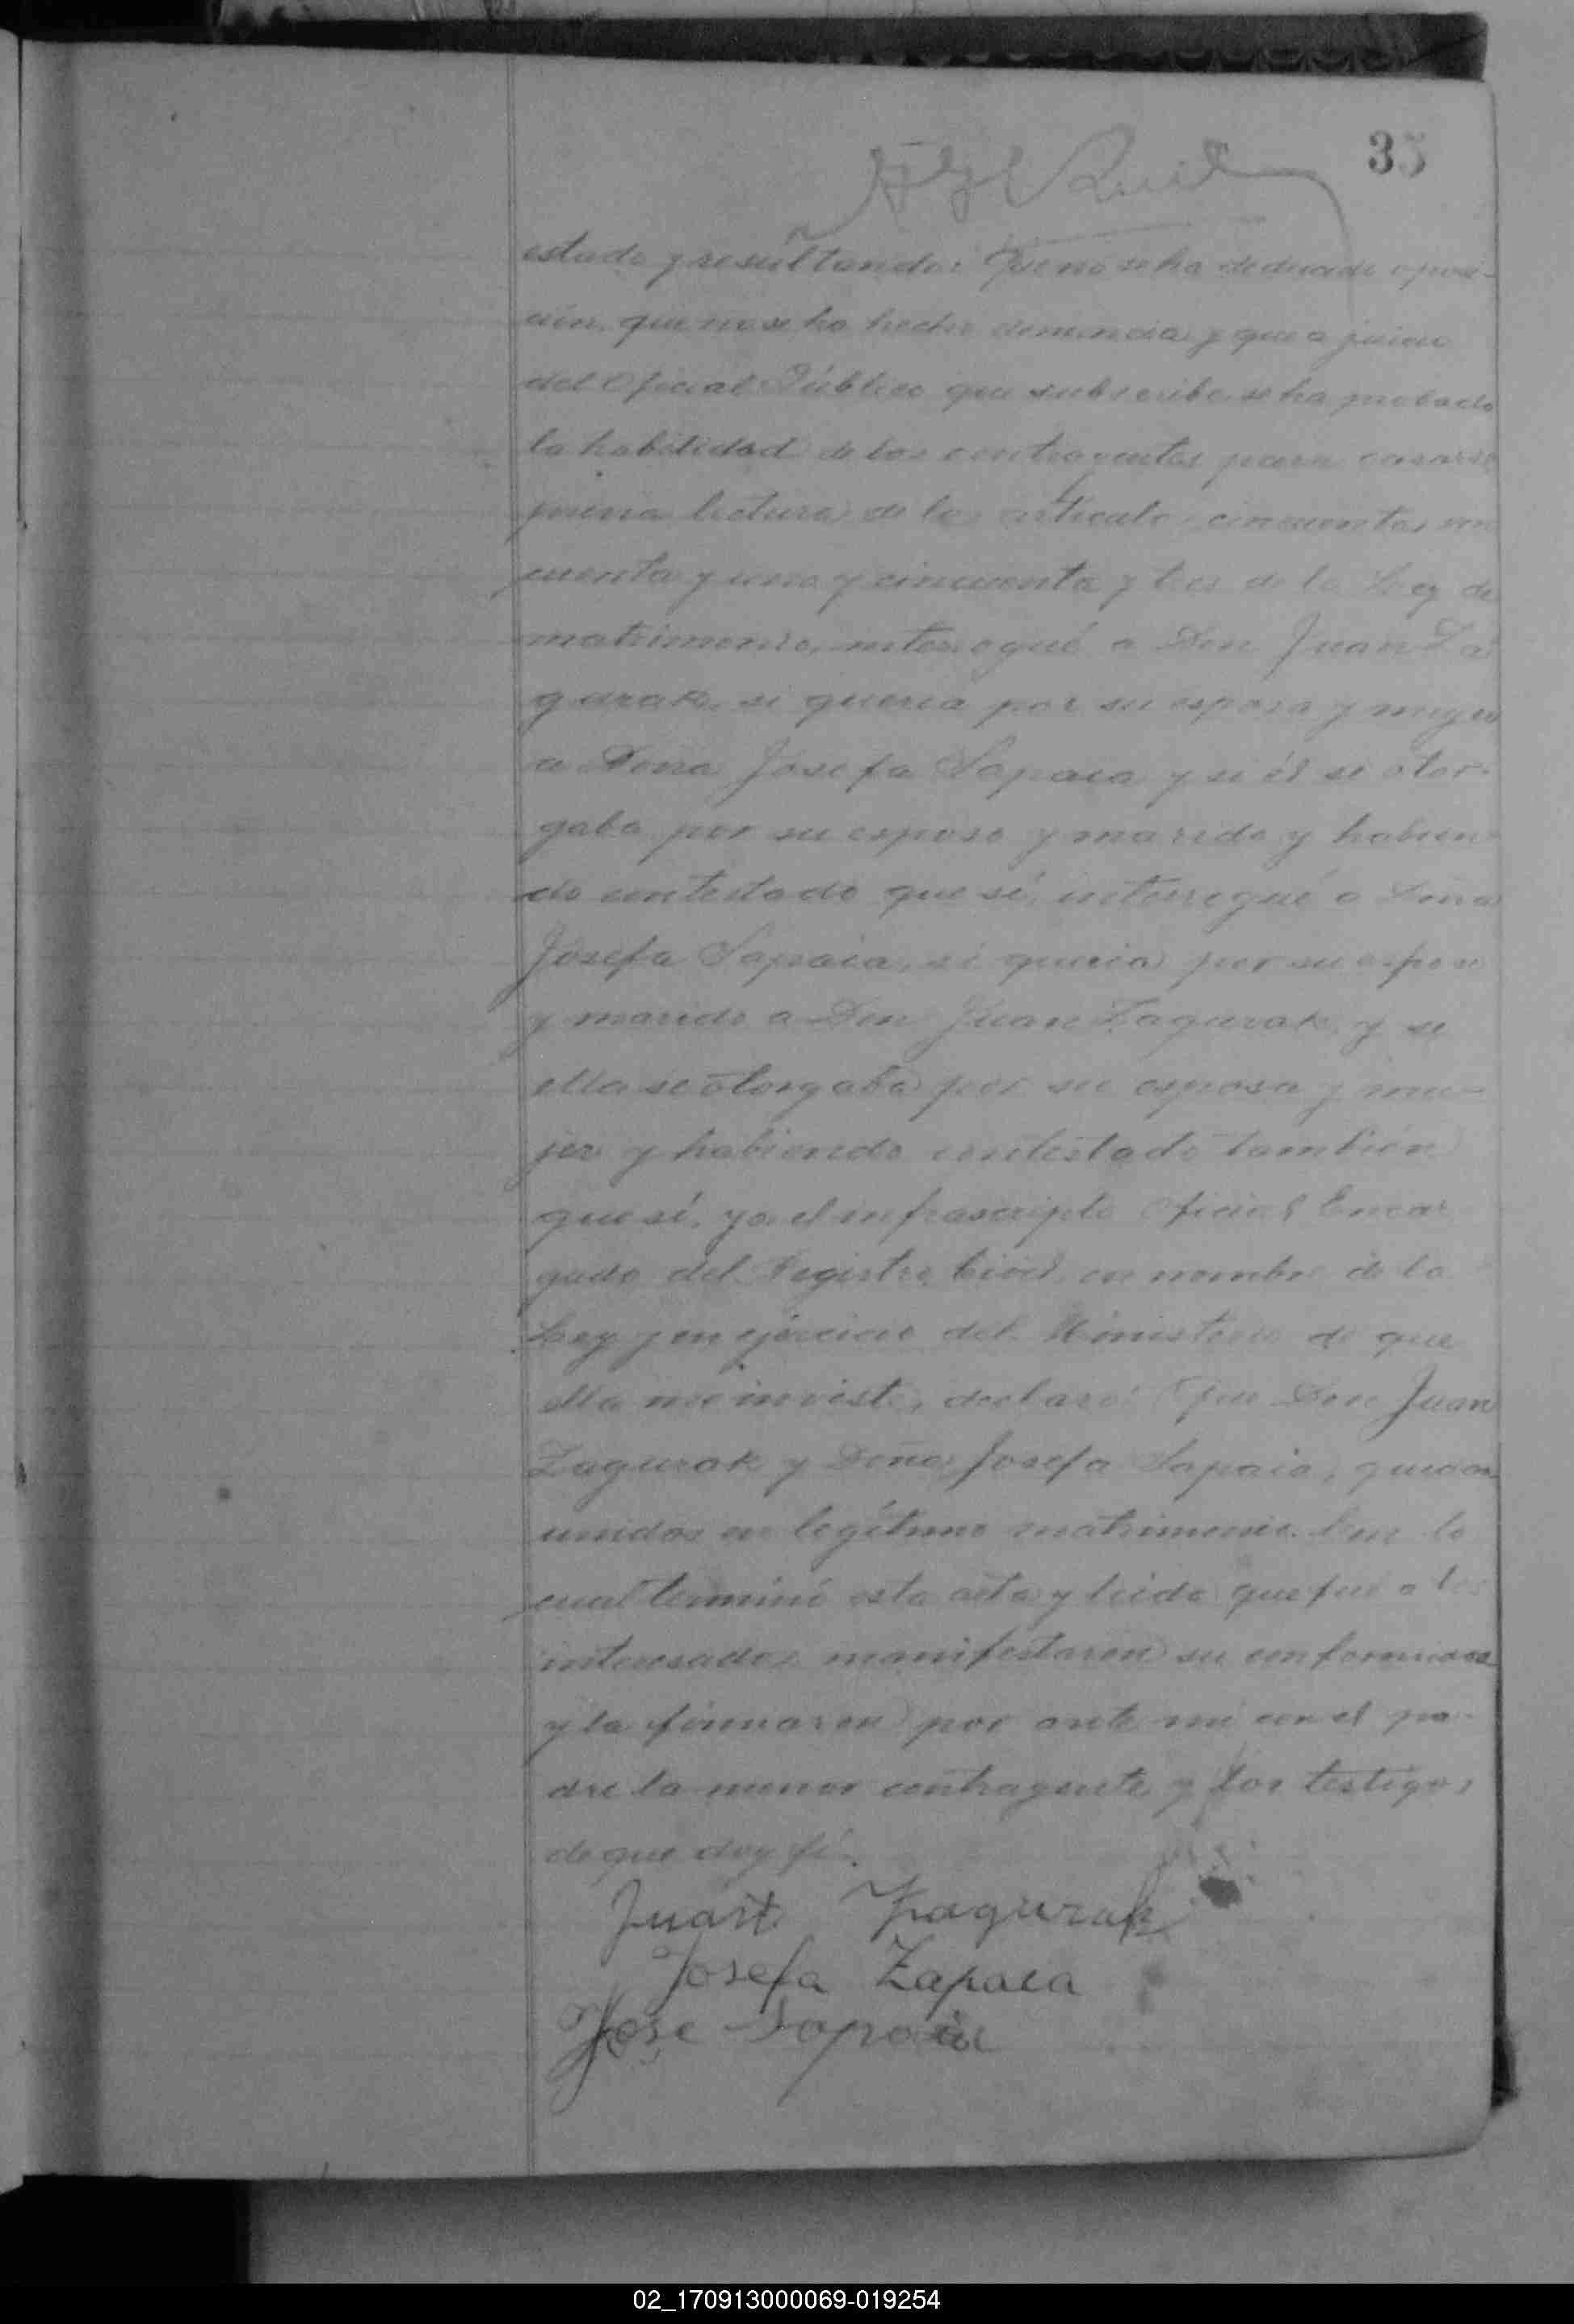 35
estado y resultando: Que no se ha deducido oposi-
ción, que no se ha hecho denuncia y que a juicio
del Oficial Público que subscribe se ha probado
la habilidad de los contrayentes para casarse
previa lectura de los articulo cincuenta, cin
cuenta y uno y cincuenta y tres de la Ley de
matrimonio, interrogué a Don Juan Za
gurak, si queria por su esposa y mujer
a Doña Josefa Sapaia y si él se otor-
gaba por su esposo y marido y habien
do contestado que sí, interrogué a Doña
Josefa Sapaia, si queria por su esposo
y marido a Don Juan Zagurak y si
ella se otorgaba por su esposa y mu-
jer y habiendo contestado tambien
que sí, yo el infrascripto Oficial Encar
gado del Registro Civil en nombre de la
Ley y en ejercicio del Ministerio de que
ella me inviste, declaro: Que Don Juan
Zagurak y Doña Josefa Sapaia, quedan
unidos en legítimo matrimonio. Con lo
cual terminó esta acta y leida que fue a los
interesados manifestaron su conformidad
y la firmaron por ante mi con el pa-
dre la menor contrayente y los testigos
de que doy fé.
Juan Zagurak
Josefa Zapaia
Jose Sapaia
02_170913000069-019254